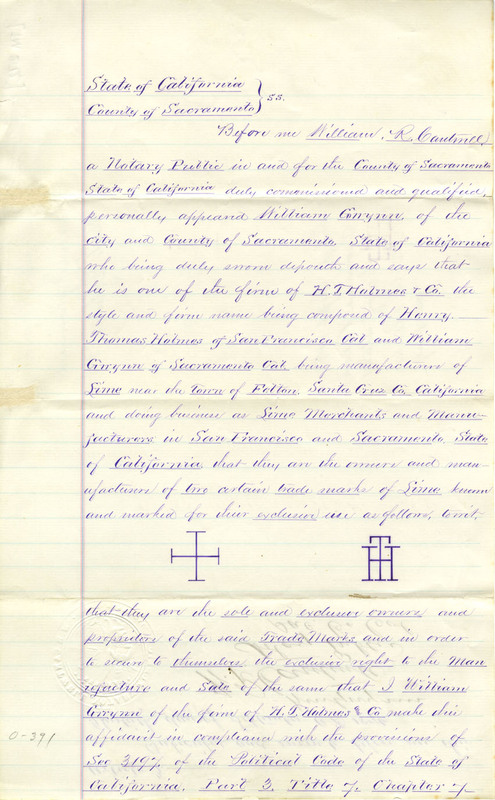 State of California
County of Sacramento } ss.
Before me William. R. Cantwell,
a Notary Public in and for the County of Sacramento
State of California duly commissioned and qualified,
personally appeared William Gwynn, of the
city and County of Sacramento. State of California
who being duly sworn deposeth and says that
he is one of the firm of H. T. Holmes & Co. the
style and firm name being composed of Henry.
Thomas Holmes of San Francisco Cal and William
Gwynn of Sacramento Cal, being manufacturers of
Lime near the town of Felton, Santa Cruz Co, California
and doing business as Lime Merchants and Manu-
facturers in San Francisco and Sacramento, State
of California that they are the owners and man-
ufacturers of two certain trade marks of Lime known
and marked for their exclusive use as follows, towit,
HTH
that they are the sole and exclusive owners and
proprietors of the said Trade Marks and in order
to secure to themselves the exclusive right to the Man
ufacture and Sale of the same that I William
Gwynn of the firm of H. T. Holmes & Co make this
affidavit in compliance with the provisions of
Sec 3197. of the Political Code of the State of
California, Part 3, Title 7, Chapter 7
0-391